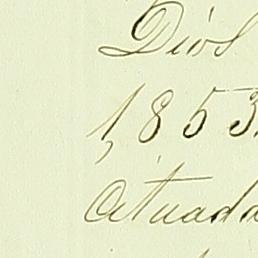 Dios
1,853.
Atuada